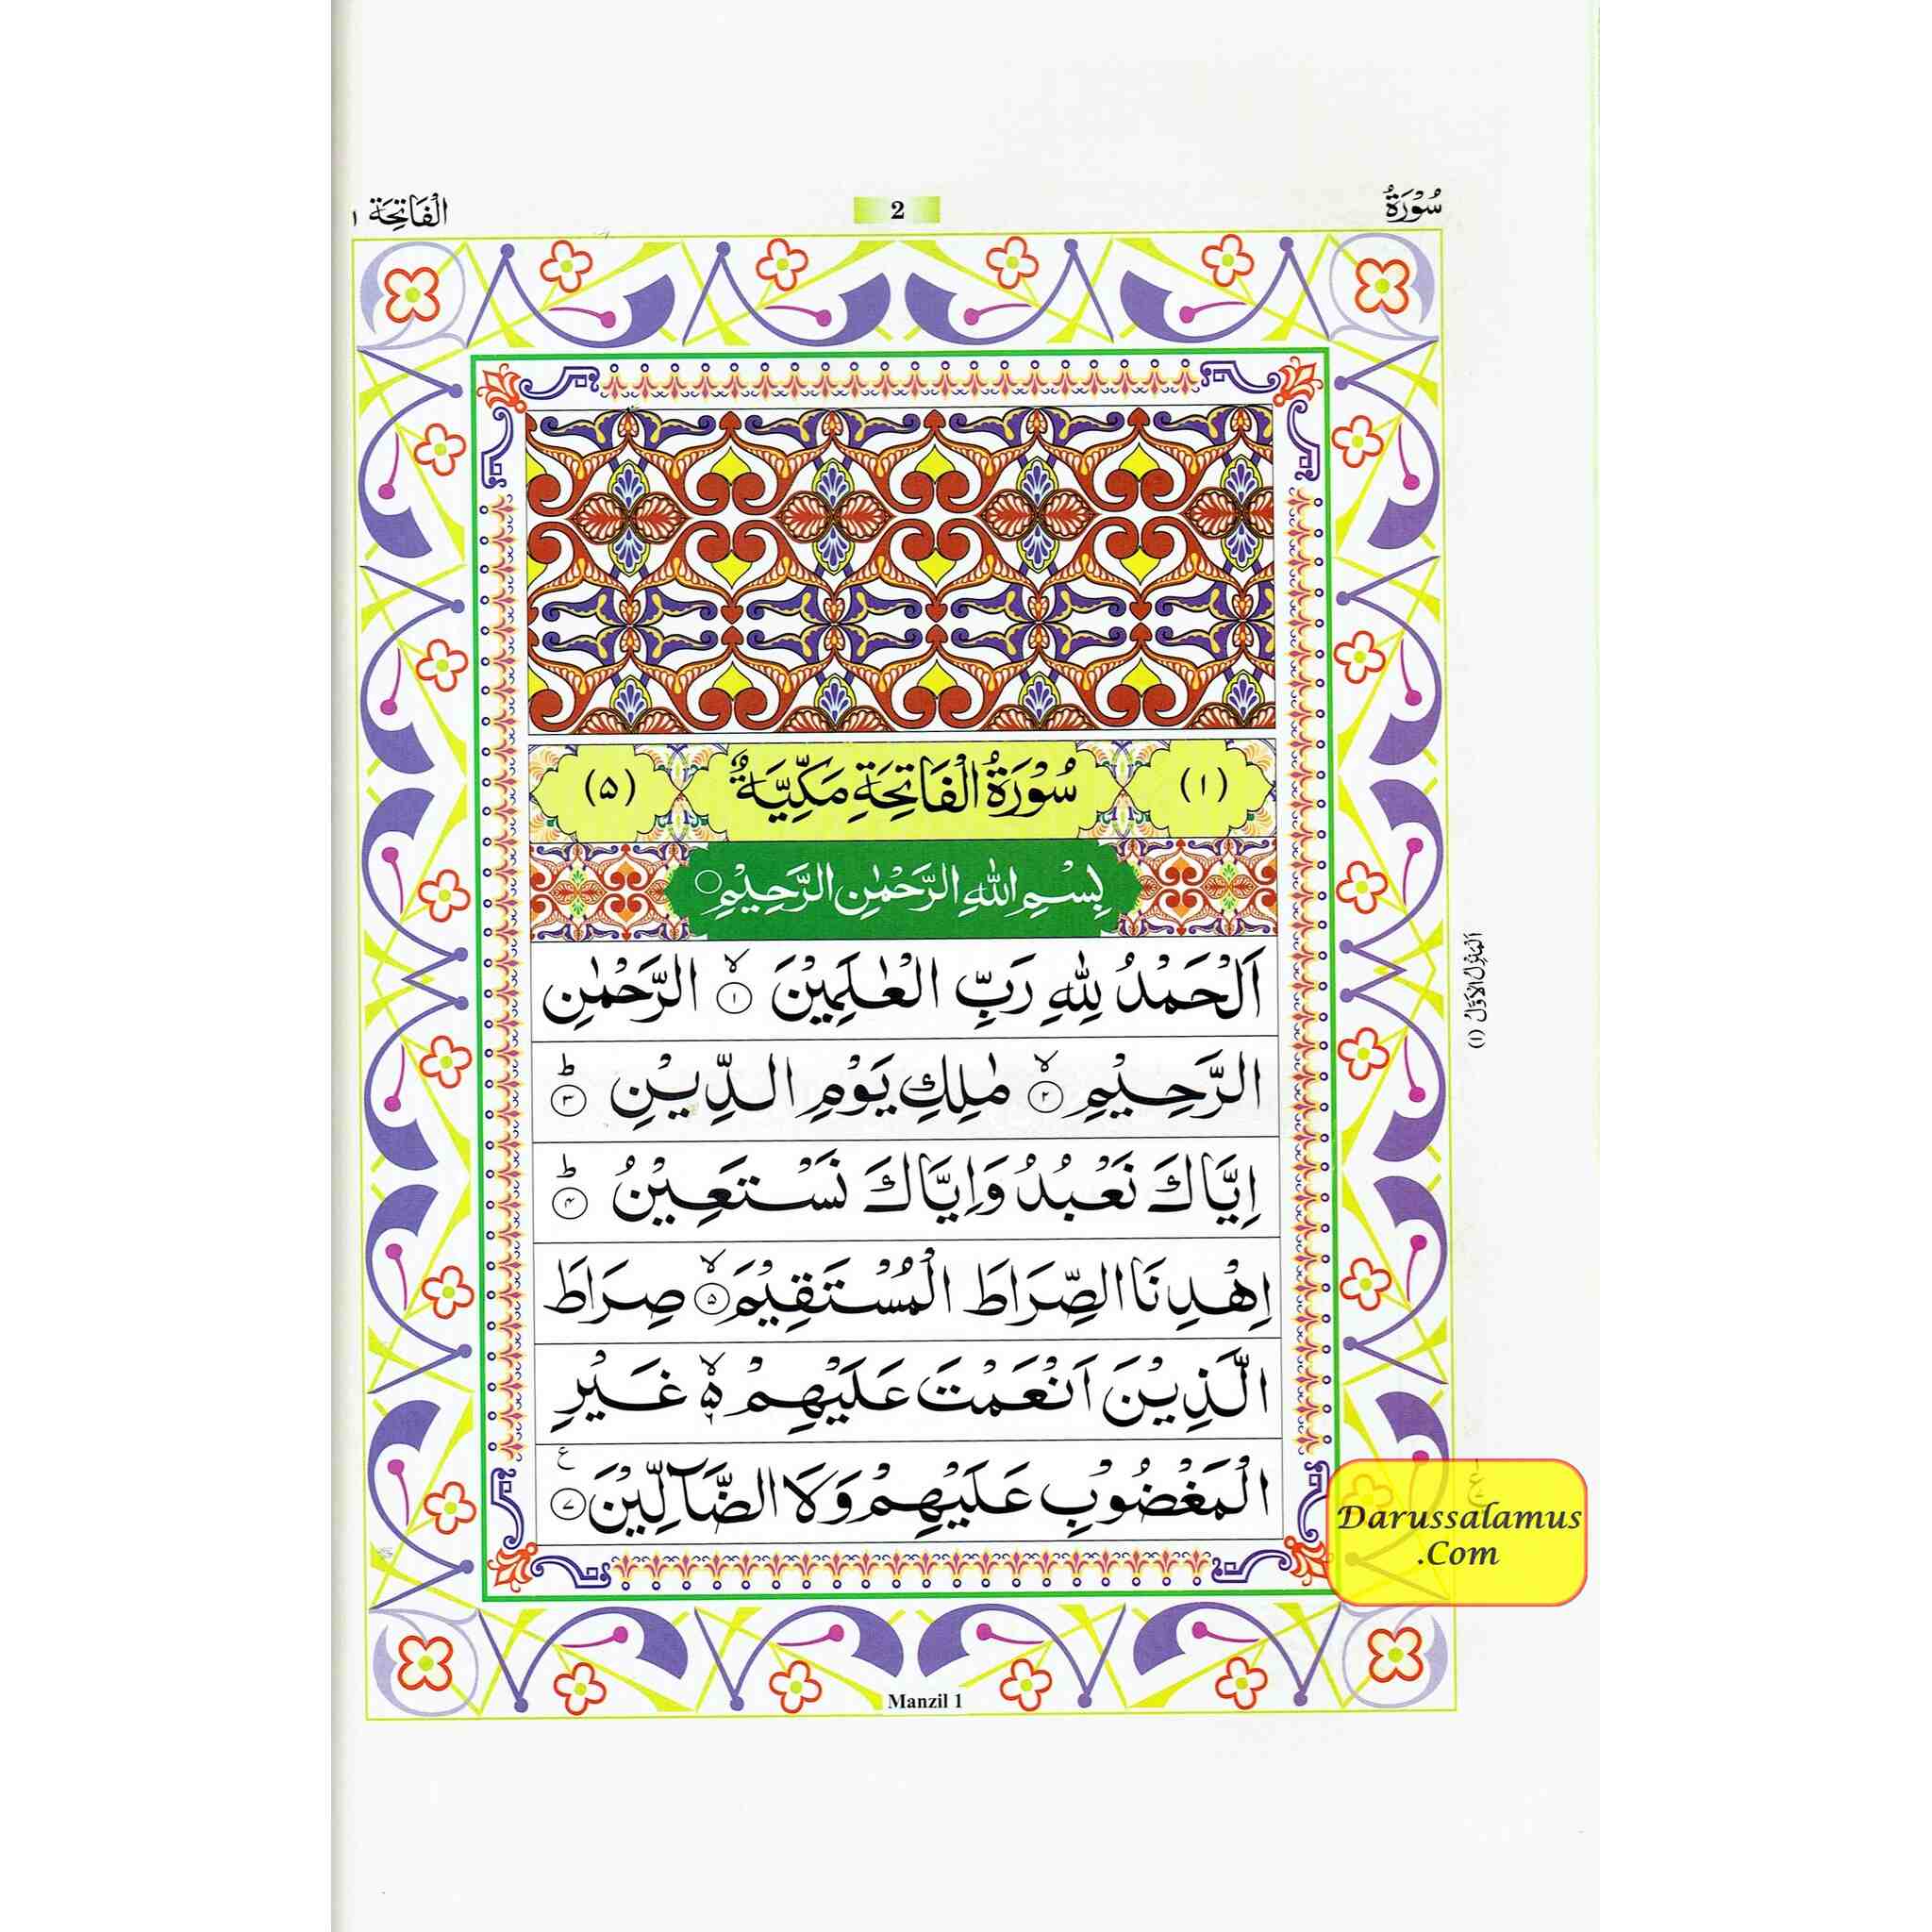 سُوْرَةُ
2
الْفَاتِحَة ١
(١)
سُوْرَةُ الْفَاتِحَةِ مَكِّيَّةٌ
(۵)
بِسْمِ اللّٰهِ الرَّحْمٰنِ الرَّحِيْمِ ○
اَلْحَمْدُ لِلّٰهِ رَبِّ الْعٰلَمِيْنَ ۙ ١ الرَّحْمٰنِ
الرَّحِيْمِ ۙ ٢ مٰلِكِ يَوْمِ الدِّيْنِ ؕ ٣
اِيَّاكَ نَعْبُدُ وَاِيَّاكَ نَسْتَعِيْنُ ؕ ۴
اِهْدِنَا الصِّرَاطَ الْمُسْتَقِيْمَ ۙ ۵ صِرَاطَ
الَّذِيْنَ اَنْعَمْتَ عَلَيْهِمْ ۙ۬ۦ غَيْرِ
الْمَغْضُوْبِ عَلَيْهِمْ وَلَا الضَّآلِّيْنَ ع ٧
اَلْمَنْزِلُ الْاَوَّلُ (١)
Darussalamus
.Com
Manzil 1